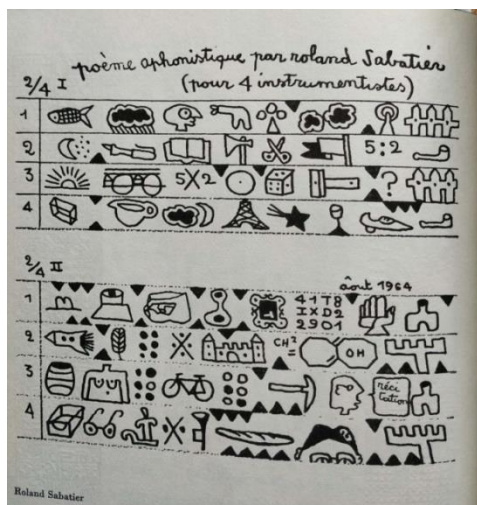 poème aphonistique par roland Sabatier
(pour 4 instrumentistes)
2/4 I
1
2 5:2
3 5X2 ?
4
2/4 II
août 1964
1 41T8
IXD2
2901
2 CH²
= OH
3 réci
tation
4
Roland Sabatier